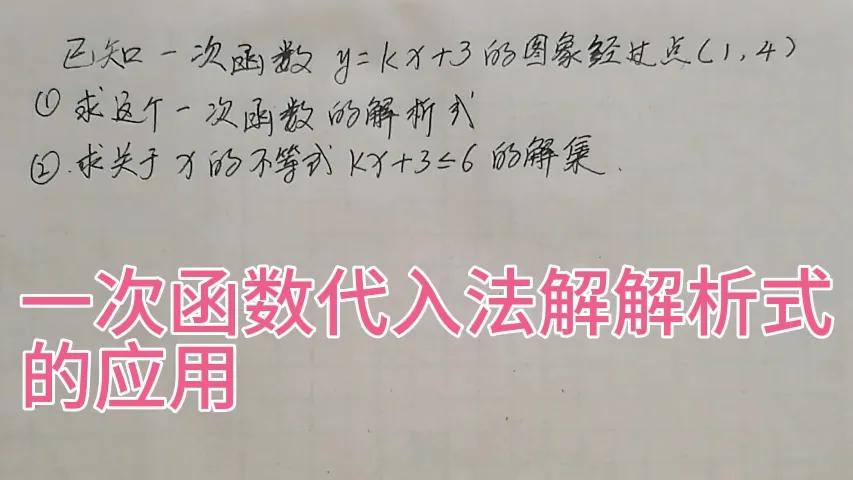 已知一次函数 y=kx+3的图象经过点(1,4)
①求这个一次函数的解析式
②.求关于x的不等式kx+3≤6的解集.
一次函数代入法解解析式
的应用